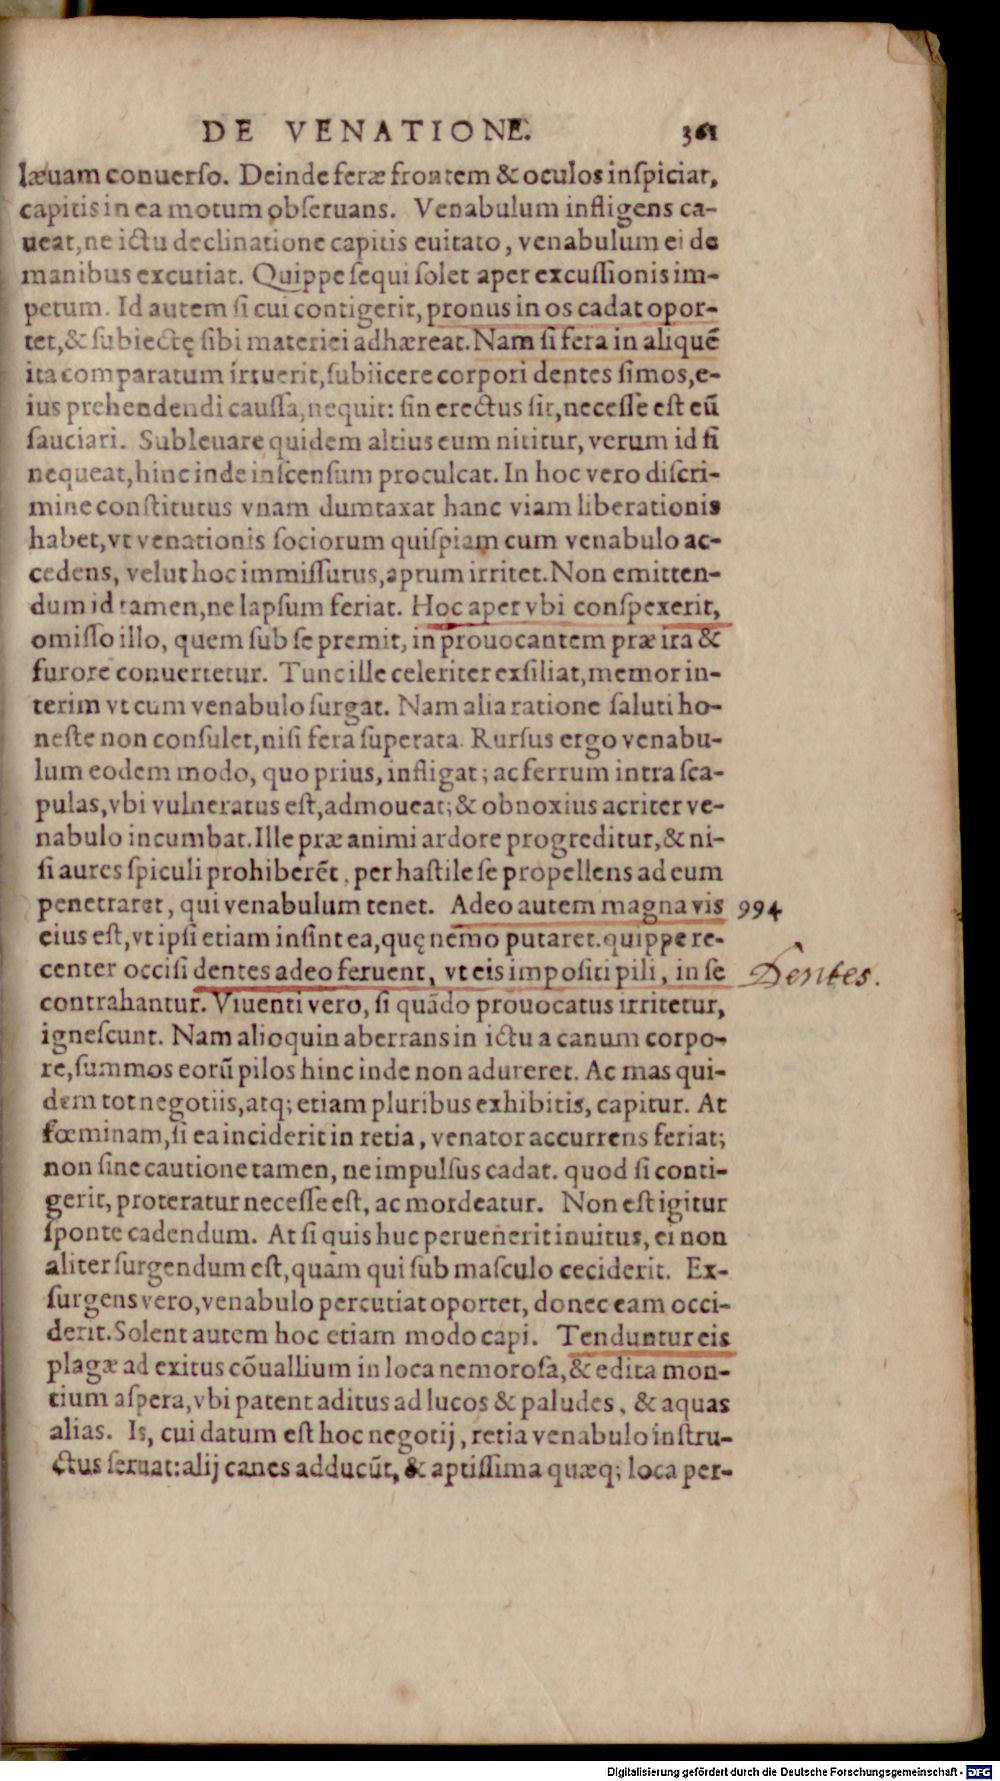 DE VENATIONE. 361
læuam conuerso. Deinde feræ frontem & oculos inspiciat,
capitis in ea motum obseruans. Venabulum infligens ca-
ueat, ne ictu declinatione capitis euitato, venabulum ei de
manibus excutiat. Quippe sequi solet aper excussionis im-
petum. Id autem si cui contigerit, pronus in os cadat opor-
tet, & subiectę sibi materiei adhæreat. Nam si fera in aliquē
ita comparatum irruerit, subiicere corpori dentes simos, e-
ius prehendendi caussa, nequit: sin erectus sit, necesse est eū
sauciari. Subleuare quidem altius eum nititur, verum id si
nequeat, hinc inde inscensum proculcat. In hoc vero discri-
mine constitutus vnam dumtaxat hanc viam liberationis
habet, vt venationis sociorum quispiam cum venabulo ac-
cedens, velut hoc immissurus, aprum irritet. Non emitten-
dum id tamen, ne lapsum feriat. Hoc aper vbi conspexerit,
omisso illo, quem sub se premit, in prouocantem præ ira &
furore conuertetur. Tunc ille celeriter exsiliat, memor in-
terim vt cum venabulo surgat. Nam alia ratione saluti ho-
neste non consulet, nisi fera superata. Rursus ergo venabu-
lum eodem modo, quo prius, infligat; ac ferrum intra sca-
pulas, vbi vulneratus est, admoueat; & obnoxius acriter ve-
nabulo incumbat. Ille præ animi ardore progreditur, & ni-
si aures spiculi prohiberēt, per hastile se propellens ad eum
penetraret, qui venabulum tenet. Adeo autem magna vis 994
eius est, vt ipsi etiam insint ea, quę nemo putaret. quippe re-
center occisi dentes adeo feruent, vt eis impositi pili, in se Dentes.
contrahantur. Viuenti vero, si quādo prouocatus irritetur,
ignescunt. Nam alioquin aberrans in ictu a canum corpo-
re, summos eorū pilos hinc inde non adureret. Ac mas qui-
dem tot negotiis, atq; etiam pluribus exhibitis, capitur. At
fœminam, si ea inciderit in retia, venator accurrens feriat;
non sine cautione tamen, ne impulsus cadat. quod si conti-
gerit, proteratur necesse est, ac mordeatur. Non est igitur
sponte cadendum. At si quis huc peruenerit inuitus, ei non
aliter surgendum est, quàm qui sub masculo ceciderit. Ex-
surgens vero, venabulo percutiat oportet, donec eam occi-
derit. Solent autem hoc etiam modo capi. Tenduntur eis
plagæ ad exitus cōuallium in loca nemorosa, & edita mon-
tium aspera, vbi patent aditus ad lucos & paludes, & aquas
alias. Is, cui datum est hoc negotij, retia venabulo instru-
ctus seruat: alij canes adducūt, & aptissima quæq; loca per-
Digitalisierung gefördert durch die Deutsche Forschungsgemeinschaft - DFG